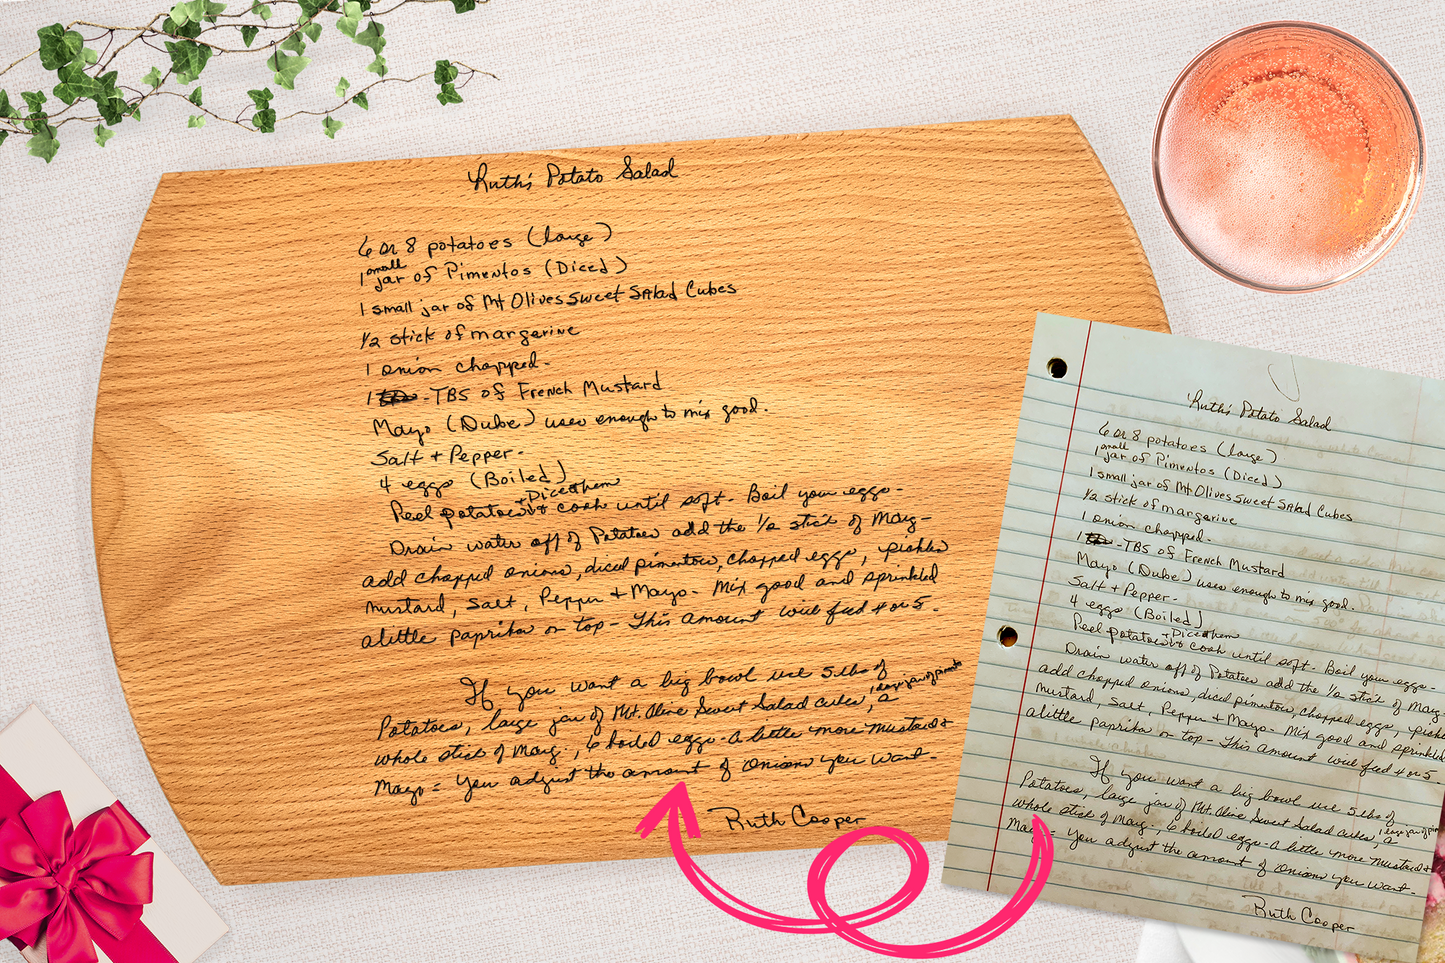 Ruth's Potato Salad
6 or 8 potatoes (large)
small
1 jar of Pimentos (Diced)
1 small jar of Mt Olives Sweet Salad Cubes
1/2 stick of margerine
1 onion chopped-
1 -TBS of French Mustard
Mayo (Duke) uses enough to mix good.
Salt + Pepper-
4 eggs (Boiled)
+ Dice them
Peel potatoes + cook until soft- Boil your eggs-
Drain water off of Potatoes add the 1/2 stick of Marg-
add chopped onions, diced pimentos, chopped eggs, pickles
mustard, salt, Pepper + Mayo- Mix good and sprinkled
alittle paprika on top- This amount will feed 4 or 5.
If you want a big bowl use 5 lbs of
1 large jar of pimento
Potatoes, large jar of Mt. Olive Sweet Salad cubes, a
whole stick of Marg., 6 boiled eggs- a little more mustard +
Mayo = You adjust the amount of onions you want-
Ruth Cooper
Ruth's Potato Salad
6 or 8 potatoes (large)
small
1 jar of Pimentos (Diced)
1 small jar of Mt Olives Sweet Salad Cubes
1/2 stick of margerine
1 onion chopped-
1 -TBS of French Mustard
Mayo (Duke) uses enough to mix good.
Salt + Pepper-
4 eggs (Boiled)
+ Dice them
Peel potatoes + cook until soft- Boil your eggs-
Drain water off of Potatoes add the 1/2 stick of Marg
add chopped onions, diced pimentos, chopped eggs,
mustard, salt, Pepper + Mayo- Mix good and sprinkled
alittle paprika on top- This amount will feed 4 or 5.
If you want a big bowl use 5 lbs of
1 large jar of
Potatoes, large jar of Mt. Olive Sweet Salad cubes, a
whole stick of Marg., 6 boiled eggs- a little more mustard +
Mayo = You adjust the amount of onions you want-
Ruth Cooper